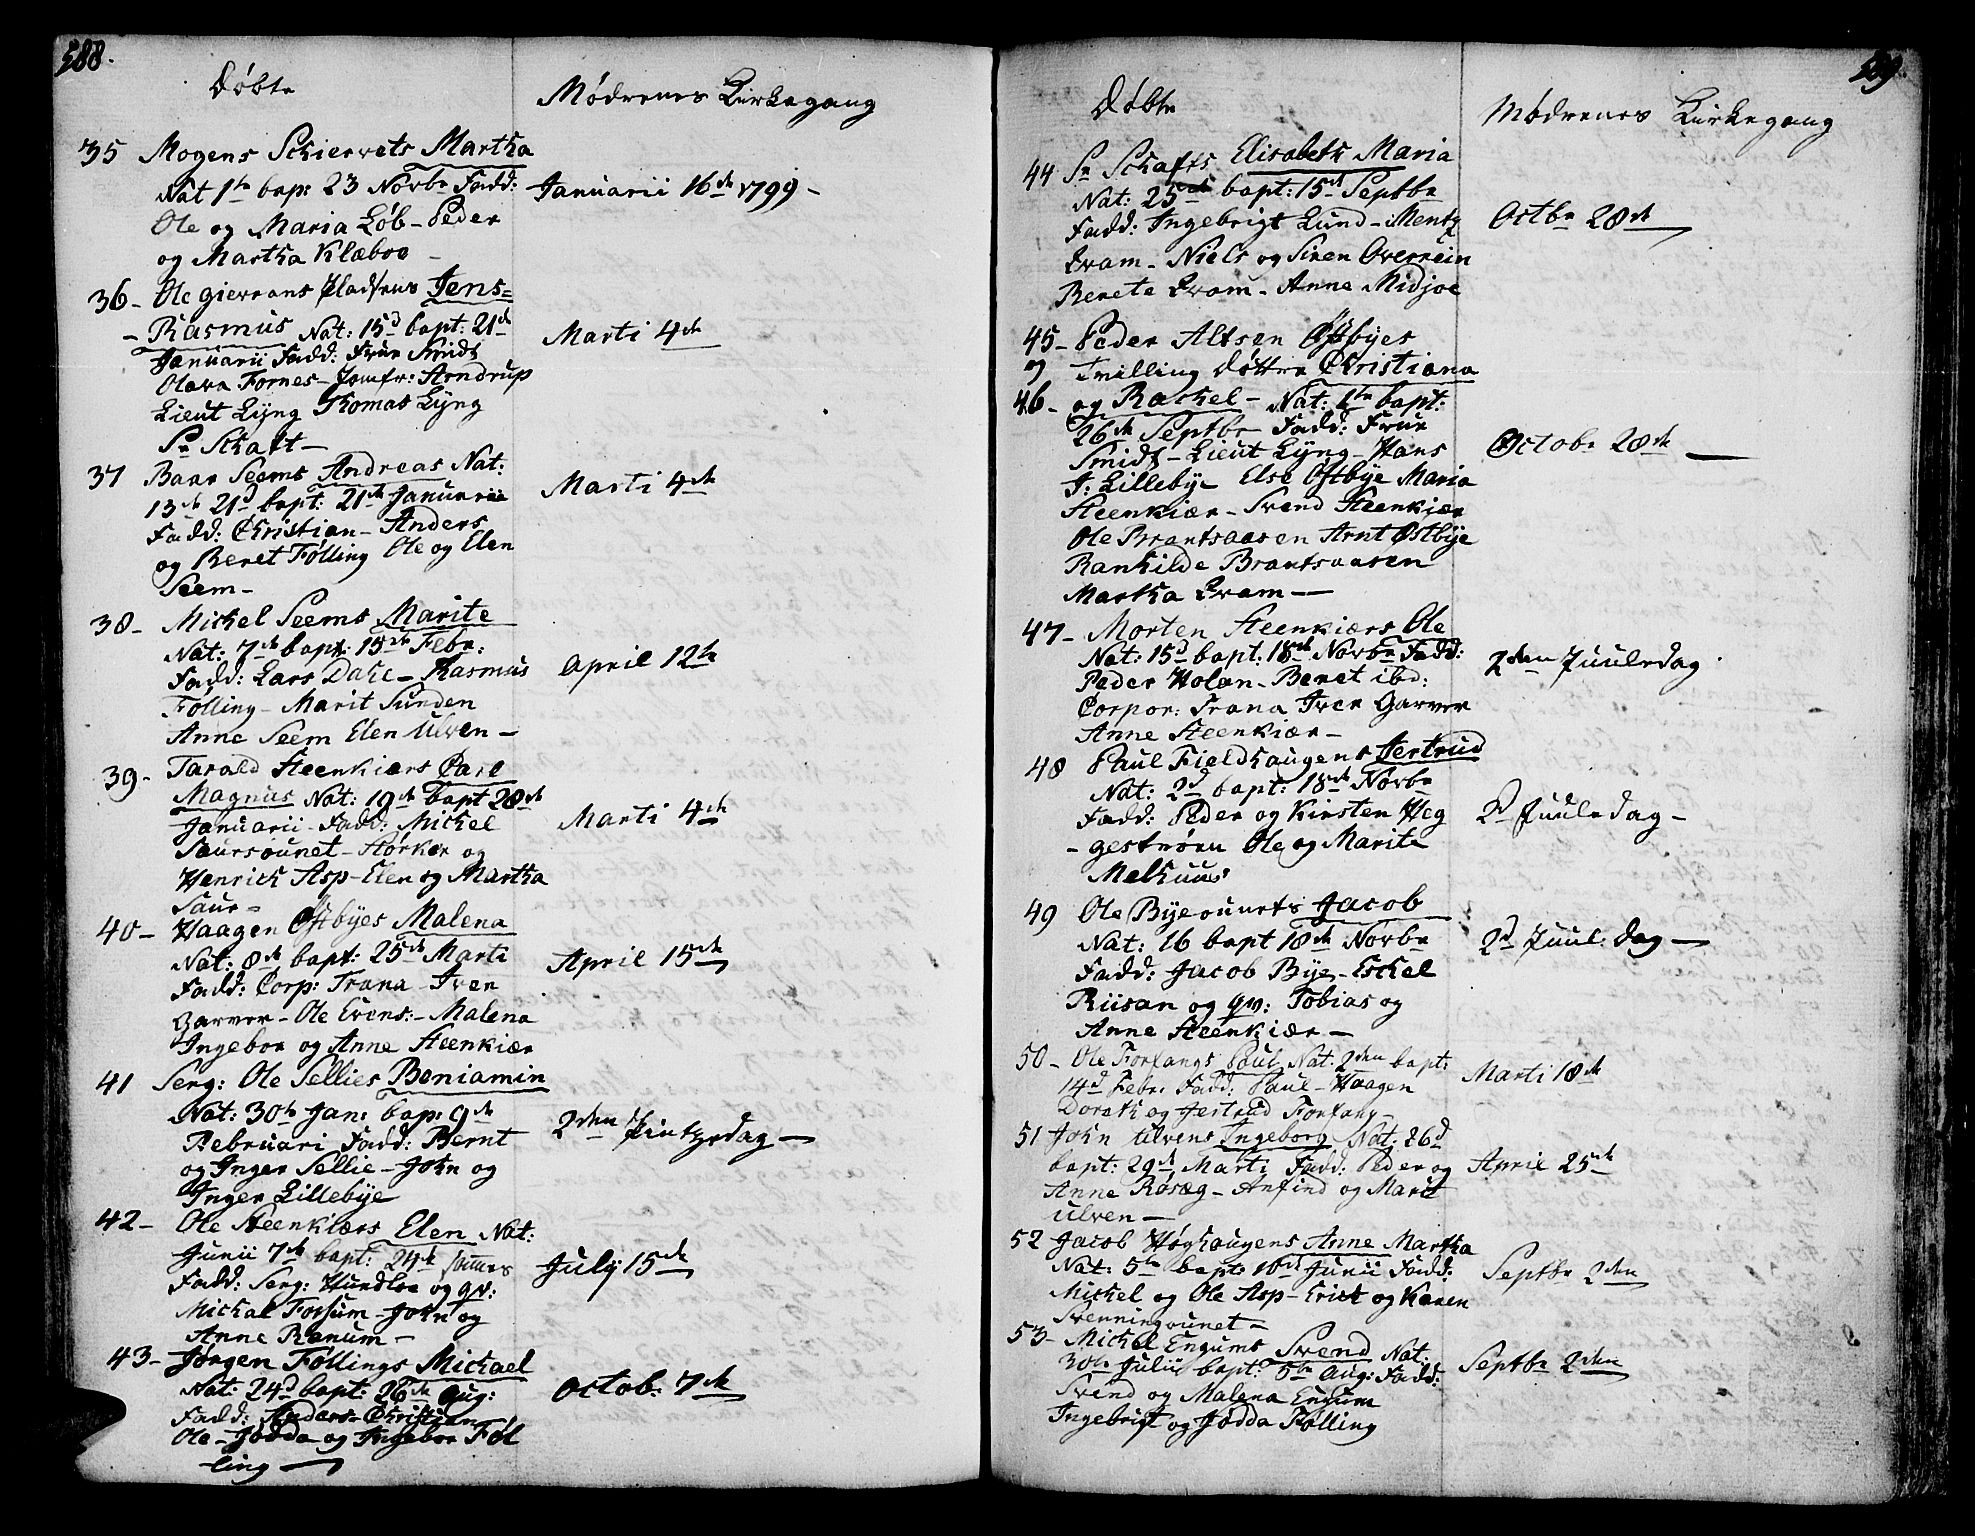 588.
Døbte
Mødrenes Kirkegang
35 Mogens Schiervets Martha
Nat 1te bap: 23 Novbr Fadd:
Januarii 16de 1799 -
Ole og Maria Løb - Peder
og Martha Klæboe -
36 - Ole Gierrans Pladsens Jens=
- Rasmus Nat: 15d bapt: 21de
Marti 4de
Januarii Fadd: Frue Smidt
Olava Fornes - Jomfr: Arndrup
Lieut Lyng Thomas Lyng
Sr Schaft -
37 Baar Seems Andreas Nat:
Marti 4de
13de 21d bapt: 21de Januarii
Fadd: Christian - Anders
og Beret Følling Ole og Elen
Seem -
38 - Michel Seems Marite
Nat: 7de bapt: 15de Febr:
April 12te
Fadd: Lars Dahl - Rasmus
Følling - Marit Sunden
Anne Seem Elen Ulven -
39 - Tarald Steenkiærs Carl
Magnus Nat: 19de bapt 28de
Marti 4de
Januarii - Fadd: Michel
Saursounet - Størker og
Henrich Asp - Elen og Martha
Saur -
40 - Haagen Østbyes Malena
Nat: 8de bapt: 25de Marti
April 15de
Fadd: Corp: Trana - Iver
Garver - Ole Evens: - Malena
Ingebor og Anne Steenkiær
41 Serg: Ole Sellies Beniamin
Nat: 30te Jan: bap: 9de
2den Pintzedag -
Februari Fadd: Bernt
og Inger Sellie - John og
Inger Lillebye
42 - Ole Steenkiærs Elen Nat:
Junii 7de bapt: 24de
July 15de
Fadd: Serg: Hundloe og qv:
Michal Forsum - John og
Anne Ranum -
43 - Jørgen Føllings Michael
Nat: 24d bapt: 26de Aug:
Octob: 7de
Fadd: Anders - Christian
Ole - Jødda og Ingebor Føl
ling -
589.
Døbte
Mødrenes Kirkegang
44 Sr Schafts Elisabeth Maria
Nat: 25de bapt: 15de Septbr
Octbr 28de
Fadd: Ingebrigt Lund - Mentz
Qvam - Niels og Siren Overrein
Berete Qvam - Anne Midjoe
45 - Peder Altsen Østbyes
og Tvilling Døttre Christiana
46 - og Rachel - Nat: 1te bapt:
26de Septbr - Fadd: Frue
October 28de -
Smidt - Lieut Lyng - Hans
J: Lillebye Else Østbye Maria
Steenkiær - Svend Steenkiær
Ole Brantsaasen Arnt Østbye
Ranhilde Brantsaasen
Martha Qvam -
47 - Morten Steenkiærs Ole
Nat: 15d bapt: 18de Novbr Fadd:
2den Juuledag
Peder Holan - Beret ibd:
Corpor: Trana Iver Garver
Anne Steenkiær -
48 Paul Fieldhaugens Jertrud
Nat: 2d bapt: 18de Novbr
2d Juuledag -
Fadd: Peder og Kirsten Heg
- gestrøen Ole og Marite
Melhuus
49 Ole Byeounets Jacob
Nat: 16 bapt 18de Novbr
2d Juul: dag -
Fadd: Jacob Bye - Eschel
Riisan og qv: Tobias og
Anne Steenkiær -
50 - Ole Forfangs Paul Nat: 2den bapt:
Marti 18de
14d Febr: Fadd: Paul - Haagen
Doreth og Jertrud Forfang -
51 John Ulvens Ingeborg Nat: 26d
bapt: 29de Marti Fadd: Peder og
April 25de
Anne Røsæg - Anfind og Marit
Ulven -
52 Jacob Høghaugens Anne Martha
Nat: 5te bapt: 10de Junii Fadd:
Septbr 2den
Michel og Ole Asp - Erick og Karen
Svenningsounet -
53 - Michel Engums Svend Nat:
30te Julii bapt: 5te Aug: Fadd:
Septbr 2den
Svend og Malena Engum
Ingebrigt og Jødda Følling